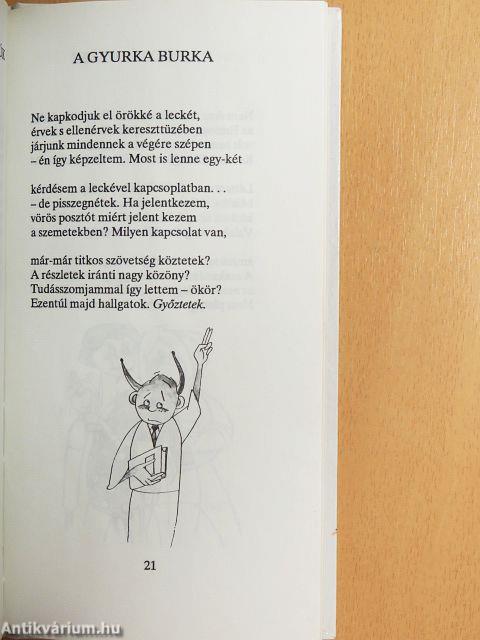 A GYURKA BURKA
Ne kapkodjuk el örökké a leckét,
érvek s ellenérvek kereszttüzében
járjunk mindennek a végére szépen
– én így képzeltem. Most is lenne egy-két
kérdésem a leckével kapcsoplatban. . .
– de pisszegnétek. Ha jelentkezem,
vörös posztót miért jelent kezem
a szemetekben? Milyen kapcsolat van,
már-már titkos szövetség köztetek?
A részletek iránti nagy közöny?
Tudásszomjammal így lettem – ökör?
Ezentúl majd hallgatok. Győztetek.
21
Antikvárium.hu